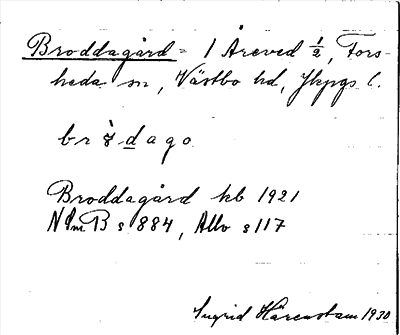 Broddagård = 1 Åreved 1/2, Fors-
heda sn, Västbo hd, Jkpgs l.
Broddagård kb 1921
NSmB s 884, Allv s 117
Ingrid Härenstam 1930